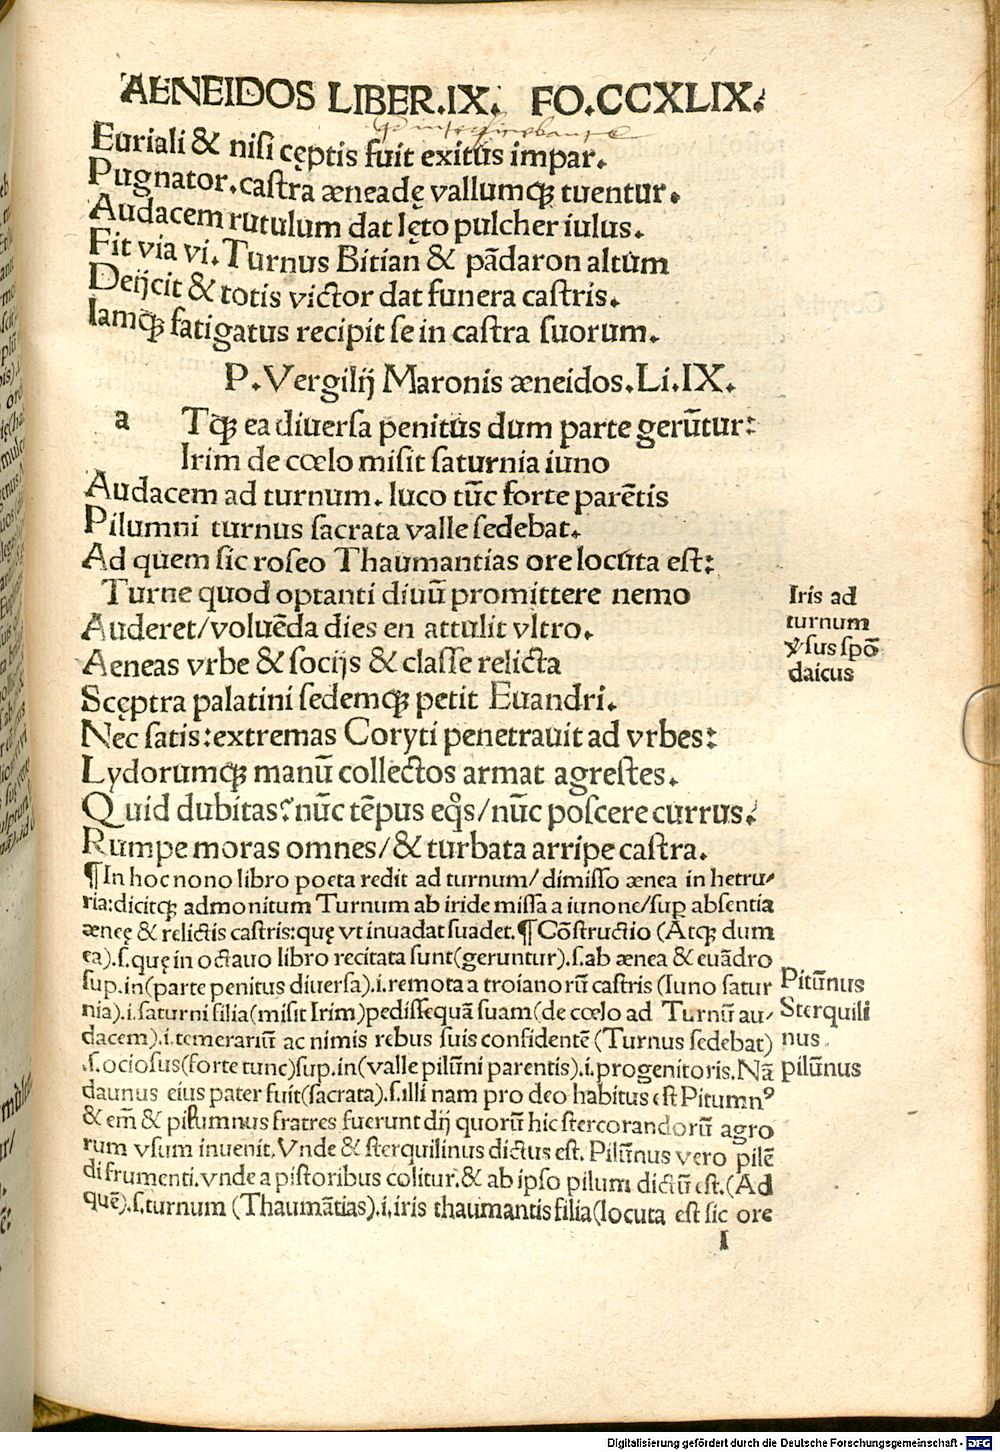 AENEIDOS LIBER.IX. FO.CCXLIX.
Euriali & nisi cęptis fuit exitus impar.
Pugnator.castra æneadę vallumq́ꝫ tuentur.
Audacem rutulum dat lęto pulcher iulus.
Fit via vi.Turnus Bitian & pãdaron altum
Deijcit & totis victor dat funera castris.
Iamq́ꝫ fatigatus recipit se in castra suorum.
P.Vergilij Maronis æneidos.Li.IX.
a Tq́ꝫ ea diuersa penitus dum parte gerũtur:
Irim de cœlo misit saturnia iuno
Audacem ad turnum. luco tũc forte parẽtis
Pilumni turnus sacrata valle sedebat.
Ad quem sic roseo Thaumantias ore locuta est:
Turne quod optanti diuũ promittere nemo
Auderet/voluẽda dies en attulit vltro.
Aeneas vrbe & socijs & classe relicta
Scęptra palatini sedemq́ꝫ petit Euandri.
Nec satis:extremas Coryti penetrauit ad vrbes:
Lydorumq́ꝫ manũ collectos armat agrestes.
Quid dubitas?nũc tẽpus eq̃s/nũc poscere currus.
Rumpe moras omnes/& turbata arripe castra.
Iris ad
turnum
ꝟsus spõ
daicus
¶In hoc nono libro poeta redit ad turnum/dimisso ænea in hetru-
ria:dicitq́ꝫ admonitum Turnum ab iride missa a iunone/suꝑ absentia
æneę & relictis castris:quę vt inuadat suadet.¶Cõstructio (Atq́ꝫ dum
ea).s.quę in octauo libro recitata sunt(geruntur).s.ab ænea & euãdro
sup.in(parte penitus diuersa).i.remota a troianorũ castris (Iuno satur
nia).i.saturni filia(misit Irim)pedissequã suam(de cœlo ad Turnũ au-
dacem).i.temerariũ ac nimis rebus suis confidentẽ (Turnus sedebat)
.s.ociosus(forte tunc)sup.in(valle pilũni parentis).i.progenitoris.Nã
daunus eius pater fuit(sacrata).s.illi nam pro deo habitus est Pitumnꝰ
& em̃ & pilumnus fratres fuerunt dij quorũ hic stercorandorũ agro
rum vsum inuenit.Vnde & sterquilinus dictus est. Pilũnus vero pilẽ
di frumenti.vnde a pistoribus colitur.& ab ipso pilum dictũ est.(Ad
quẽ).s.turnum (Thaumãtias).i.iris thaumantis filia(locuta est sic ore
Pitũnus
Sterquili
nus.
pilũnus
I
Digitalisierung gefördert durch die Deutsche Forschungsgemeinschaft - DFG